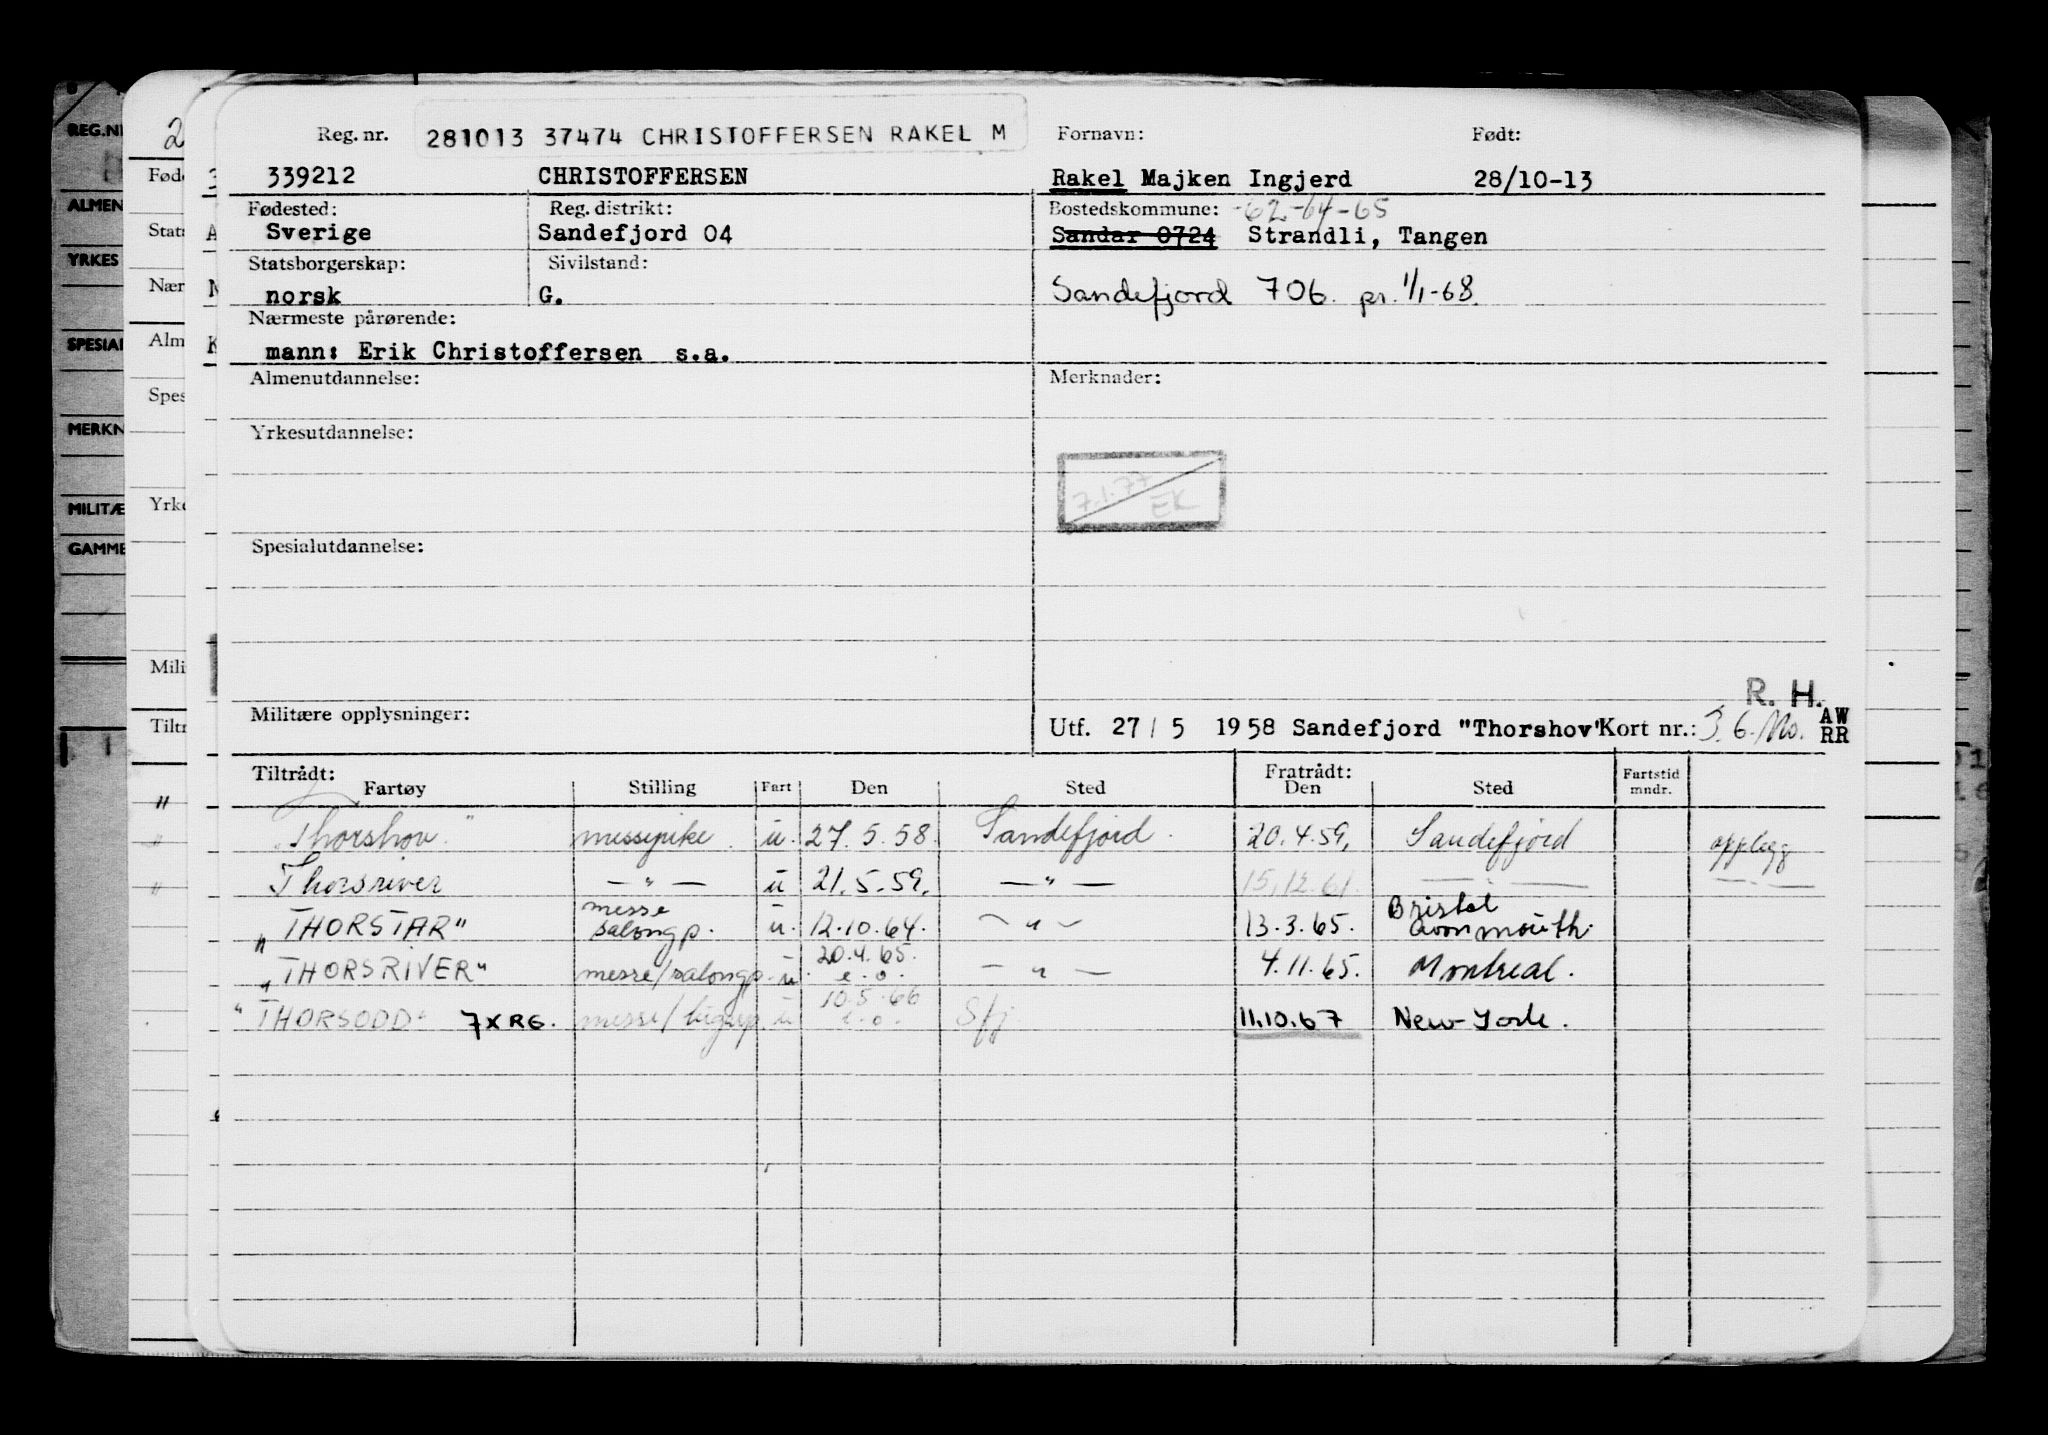 Reg. nr. 281013 37474 CHRISTOFFERSEN RAKEL M Fornavn: Født:
339212 CHRISTOFFERSEN Rakel Majken Ingjerd 28/10-13
Fødested: Reg. distrikt: Bostedskommune: -62-64-65
Sverige Sandefjord 04 Sandar 0724 Strandli, Tangen
Statsborgerskap: Sivilstand:
norsk G. Sandefjord 706 pr. 1/1-68.
Nærmeste pårørende:
mann: Erik Christoffersen s.a.
Almenutdannelse: Merknader:
Yrkesutdannelse:
7.1.77
EK
Spesialutdannelse:
R. H.
Militære opplysninger: Utf. 27/5 1958 Sandefjord "Thorshov" Kort nr.: AW
RR
Tiltrådt: Fratrådt:
Fartøy Stilling Fart Den Sted Den Sted Fartstid mndr.
"Thorshov" messepike. u. 27.5.58. Sandefjord. 20.4.59. Sandefjord opplegg
Thorsriver — " — u 21.5.59. — " — 15.12.61. — " — — " —
"THORSTAR" messe salongp. u. 12.10.64. — " — 13.3.65. Bristol Avonmouth.
"THORSRIVER" messe/salongp. u 20.4.65. e.o. — " — 4.11.65. Montreal.
"THORSODD" 7XRG. u 10.5.66 e.o. Sfj 11.10.67 New York.
REG.NR
ALMEN
YRKES
SPESIAL
MERKN
MILITÆ
GAMME
Fød
Stats
Nær
Alm
Spes
Yrke
Mili
Tiltr